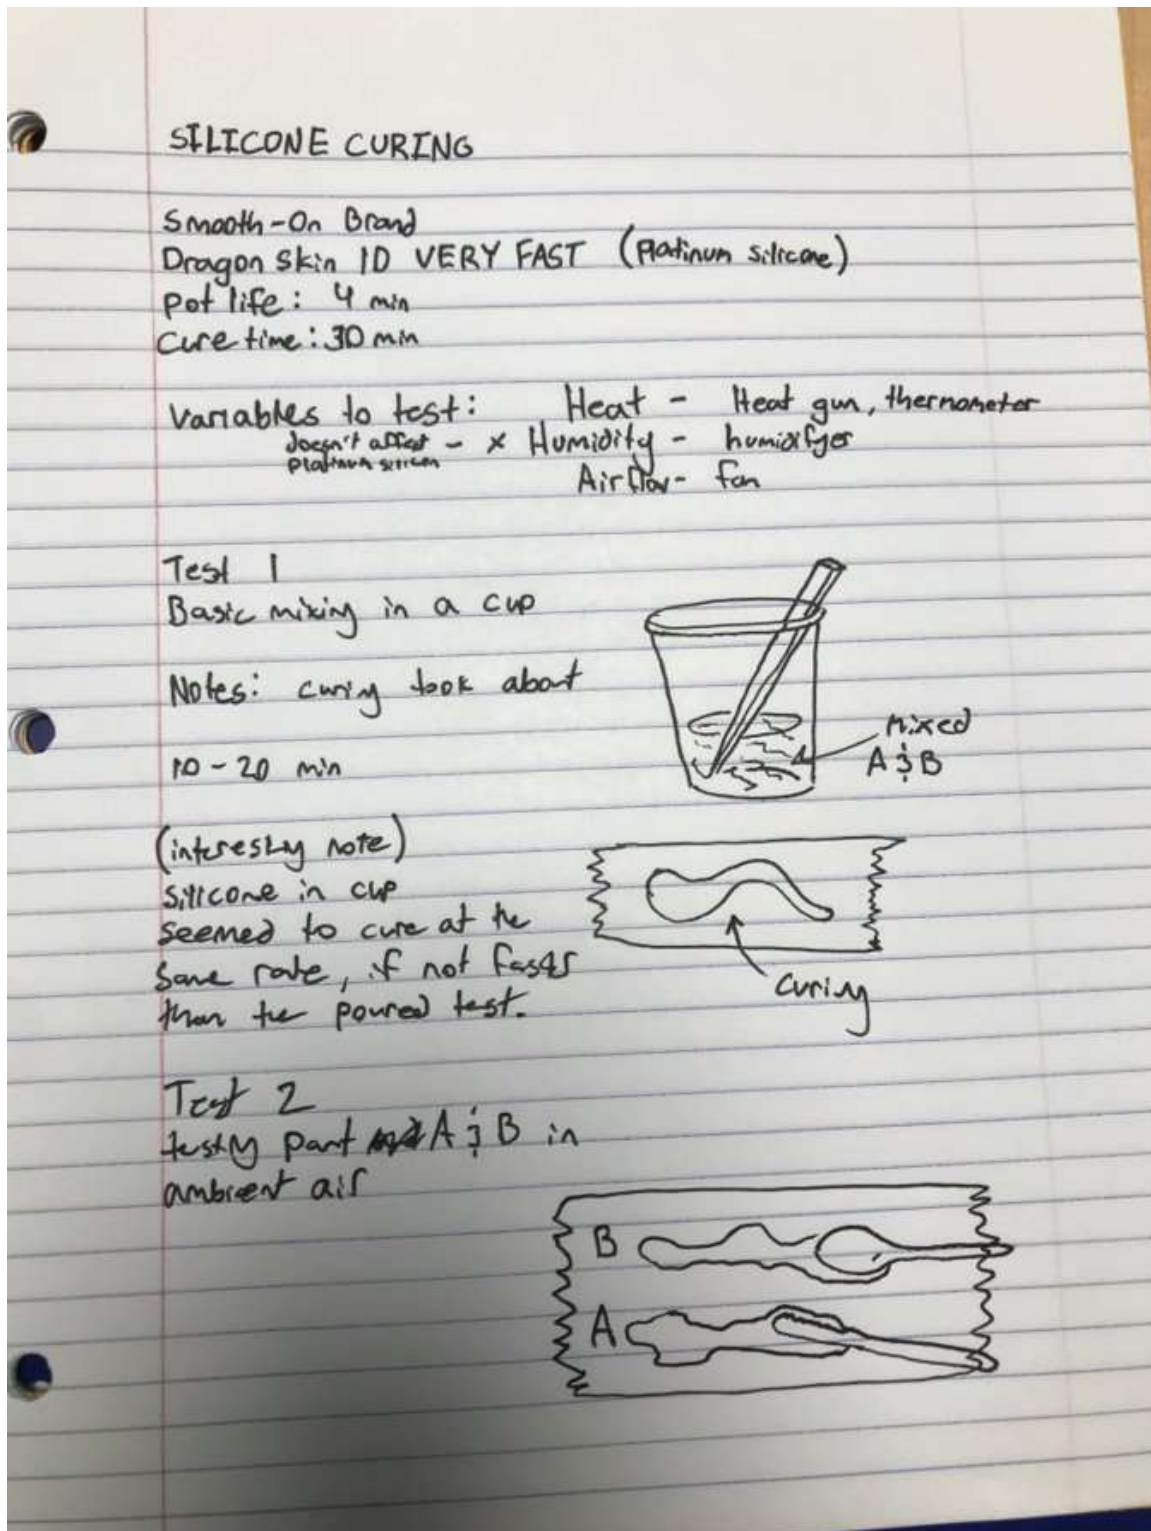 SILICONE CURING
Smooth-On Brand
Dragon Skin 10 VERY FAST (Platinum silicone)
Pot life: 4 min
Cure time: 30 min
Variables to test: Heat - Heat gun, thermometer
doesn't affect - x Humidity - humidifyer
platinum silicon
Airflow - fan
Test 1
Basic mixing in a cup
Notes: curing took about
mixed
A & B
10-20 min
(interesting note)
silicone in cup
seemed to cure at the
same rate, if not faster
than the poured test.
curing
Test 2
testing part A & B in
ambient air
B
A